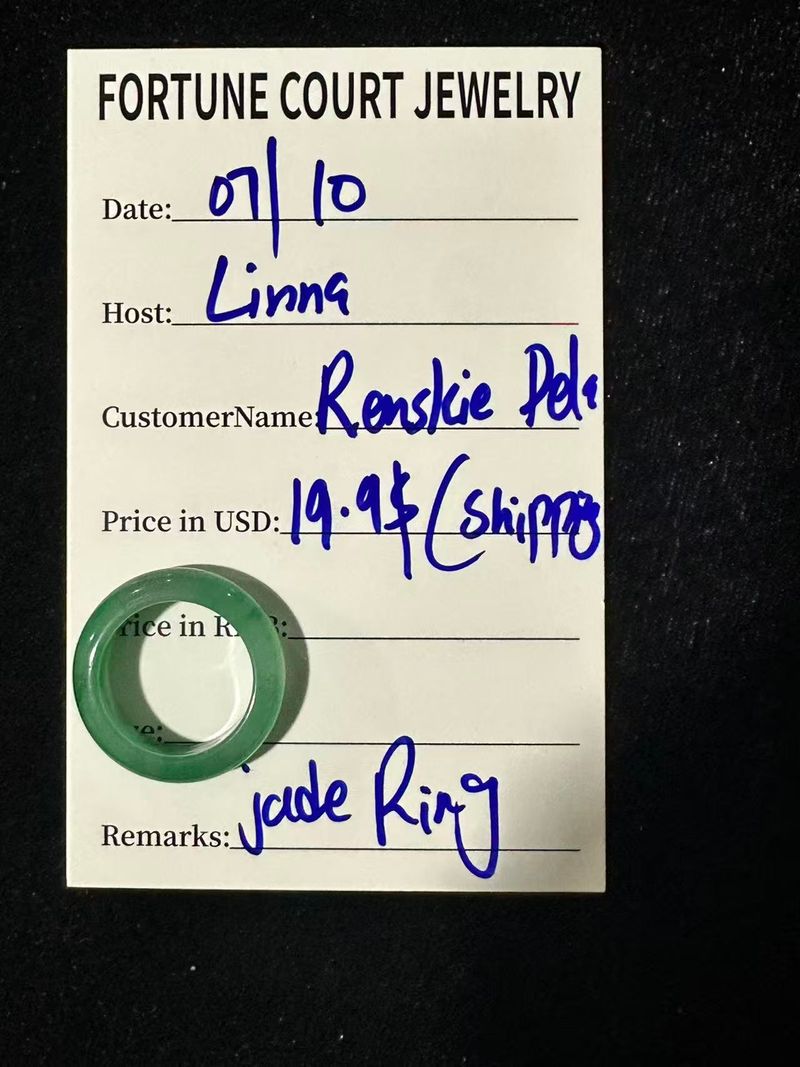 FORTUNE COURT JEWELRY
Date: 07/10
Host: Linna
CustomerName: Renskie Pela
Price in USD: 19.9$ (Shipping
rice in R B:
e:
Remarks: jade Ring